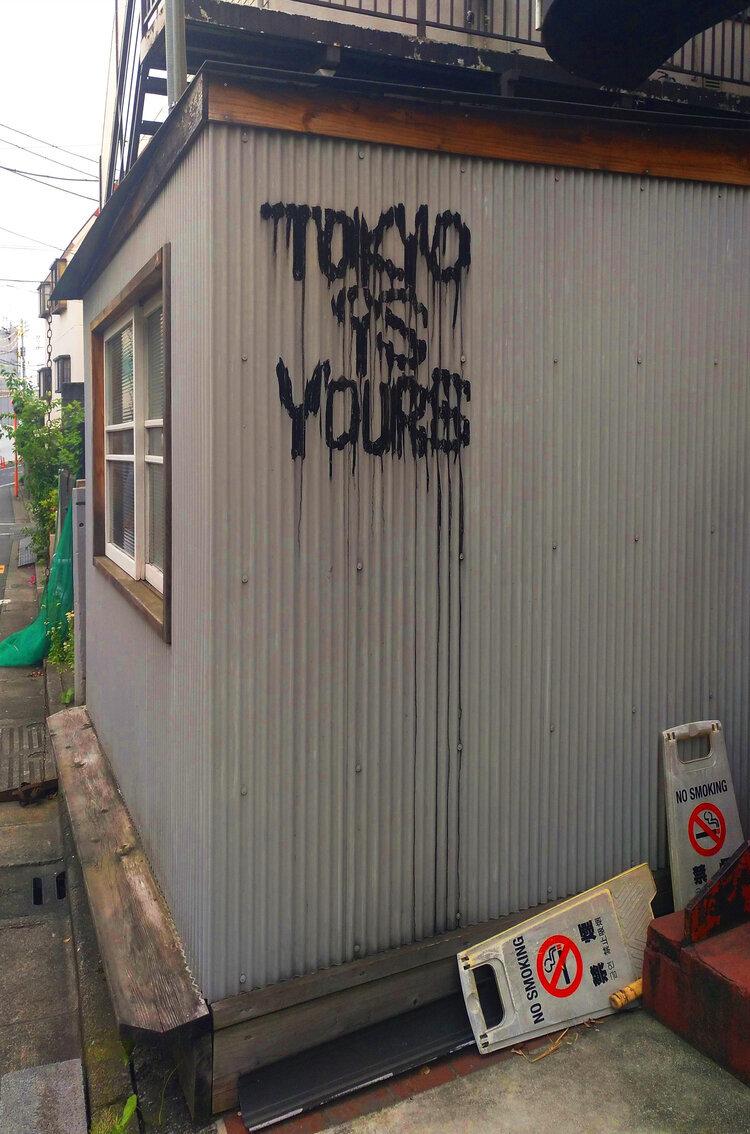 TOKYO
IS
YOURS
NO SMOKING
禁
NO SMOKING
禁煙
금연 禁止吸烟